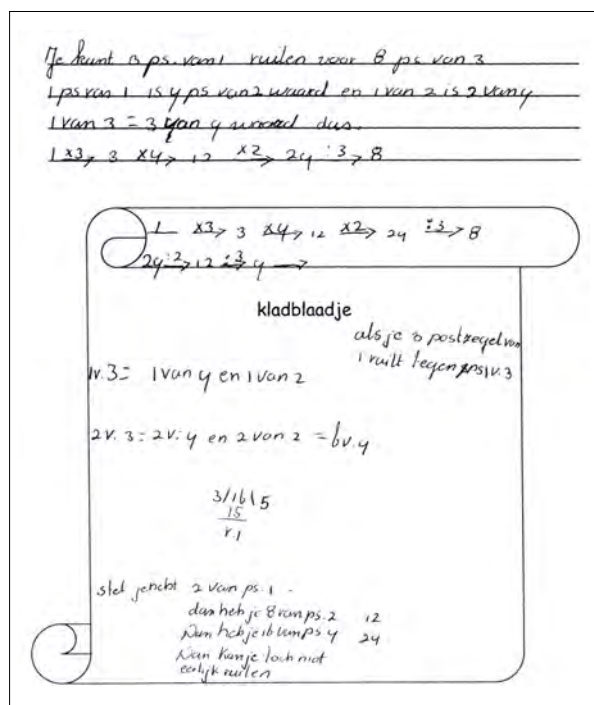 Je kunt 3 ps. van 1 ruilen voor 8 ps van 3
1 ps van 1 is 4 ps van 2 waard en 1 van 2 is 2 van 4
1 van 3 = 3 van 4 waard dus.
1 x3→ 3 x4→ 12 x2→ 24 :3→ 8
1 x3→ 3 x4→ 12 x2→ 24 :3→ 8
24 :2→ 12 :3→ 4 →
kladblaadje
als je 3 postzegel van
1 ruilt tegen ps v. 3
1v. 3 = 1 van 4 en 1 van 2
2v. 3 = 2v. 4 en 2 van 2 = 6v. 4
3/16\5
15
r.1
stel je hebt 2 van ps. 1 -
dan heb je 8 van ps. 2 12
Dan heb je 16 van ps 4 24
Dan kan je toch niet
eerlijk ruilen